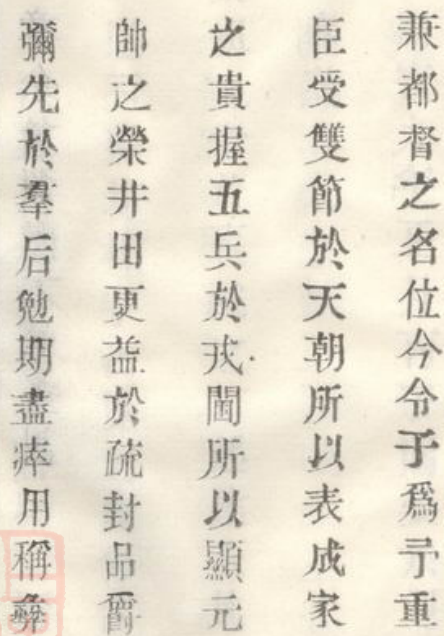 兼都督之名位今令于爲予重
臣受雙節於天朝所以表成家
之貴握五兵於戎閫所以顯元
帥之榮井田更益於疏封品爵
彌先於羣后勉期盡瘁用稱彝